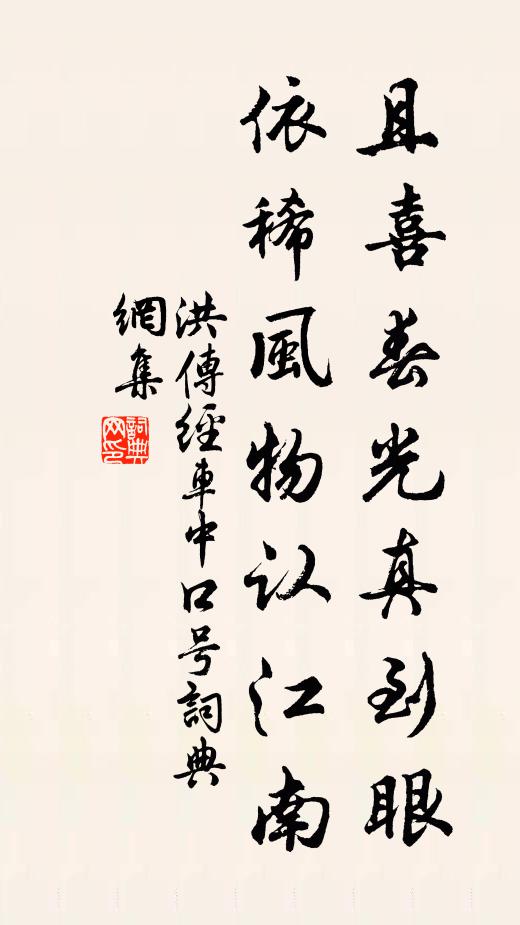 且喜春光真到眼
依稀風物认江南
洪傳經車中口号詞典
網集
詞典網印